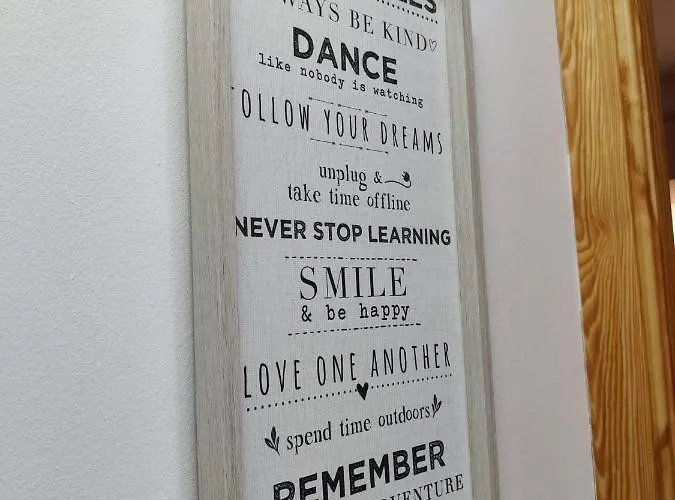 ALWAYS BE KIND
DANCE
like nobody is watching
FOLLOW YOUR DREAMS
unplug &
take time offline
NEVER STOP LEARNING
SMILE
& be happy
LOVE ONE ANOTHER
spend time outdoors
REMEMBER
ADVENTURE